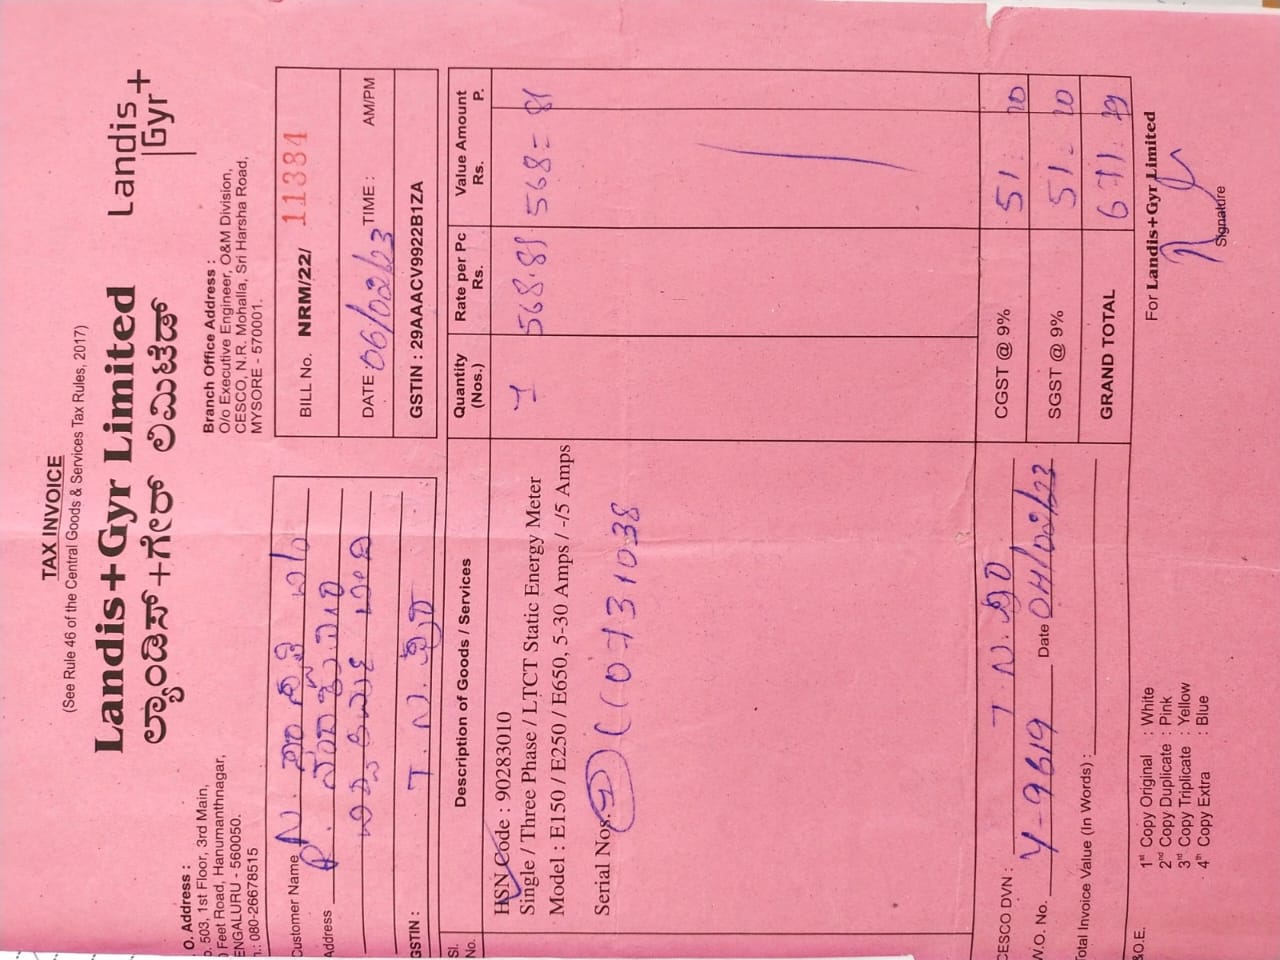 TAX INVOICE
(See Rule 46 of the Central Goods & Services Tax Rules, 2017)
Landis+Gyr Limited
ಲ್ಯಾಂಡಿಸ್+ಗೇರ್ ಲಿಮಿಟೆಡ್
Landis
Gyr+
O. Address :
503, 1st Floor, 3rd Main,
Feet Road, Hanumanthnagar,
ENGALURU - 560050.
: 080-26678515
Branch Office Address :
O/o Executive Engineer, O&M Division,
CESCO, N.R. Mohalla, Sri Harsha Road,
MYSORE - 570001.
Customer Name
Address
GSTIN : T. N.
BILL No. NRM/22/ 11384
DATE : 06/02/23 TIME : AM/PM
GSTIN : 29AAACV9922B1ZA
Sl. No. Description of Goods / Services Quantity (Nos.) Rate per Pc Rs. Value Amount Rs. P.
HSN Code : 90283010 1 568.81 568=81
Single / Three Phase / LTCT Static Energy Meter
Model : E150 / E250 / E650, 5-30 Amps / -/5 Amps
Serial Nos.
CESCO DVN : T. N. CGST @ 9% 51 . 20
W.O. No. Y-9619 Date 04/02/23 SGST @ 9% 51 . 20
Total Invoice Value (In Words) : GRAND TOTAL 671
&O.E.
For Landis+Gyr Limited
Signature
1st Copy Original : White
2nd Copy Duplicate : Pink
3rd Copy Triplicate : Yellow
4th Copy Extra : Blue